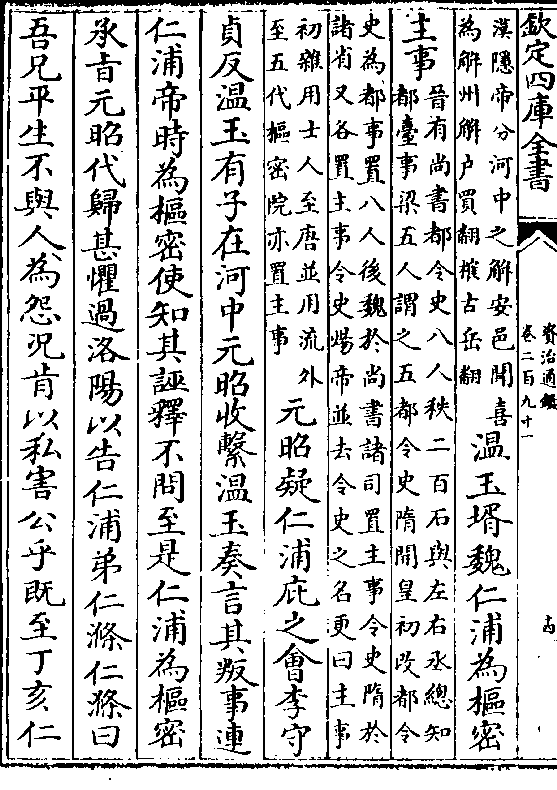 欽定四庫全書
資治通鑑
卷二百九十一
漢隱帝分河中之解安邑聞喜
為解州解户買翻榷古岳翻
温玉壻魏仁浦為樞密
主事
晉有尚書都令史八人秩二百石與左右丞總知
都臺事梁五人謂之五都令史隋開皇初改都令
史為都事置八人後魏於尚書諸司置主事令史隋於
諸省又各置主事令史煬帝並去令史之名更曰主事
初雜用士人至唐並用流外
至五代樞密院亦置主事
元昭疑仁浦庇之會李守
貞反温玉有子在河中元昭收繫温玉奏言其叛事連
仁浦帝時為樞密使知其誣釋不問至是仁浦為樞密
承旨元昭代歸甚懼過洛陽以告仁浦弟仁滌仁滌曰
吾兄平生不與人為怨况肯以私害公乎既至丁亥仁